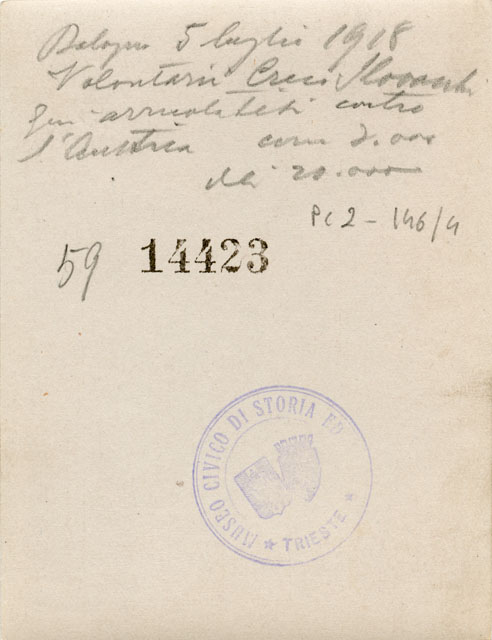 Bologna 5 luglio 1918
Volontarii Ceco Slovacchi
già arruolatisi contro
l'Austria
20.000
Pc 2 - 146/4
59
14423
MUSEO CIVICO DI STORIA ED
★ TRIESTE ★